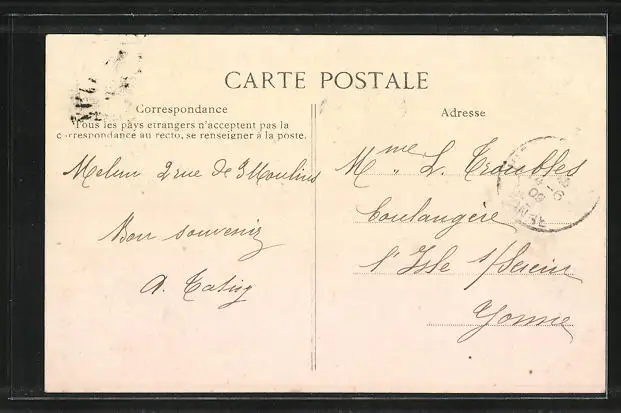 CARTE POSTALE
Correspondance
Tous les pays étrangers n'acceptent pas la
correspondance au recto, se renseigner à la poste.
Melun 2 rue de Moulins
Bon souvenir
A.
Adresse
Mme L.
boulangère
l'Isle s/Serein
Yonne
4-6
09